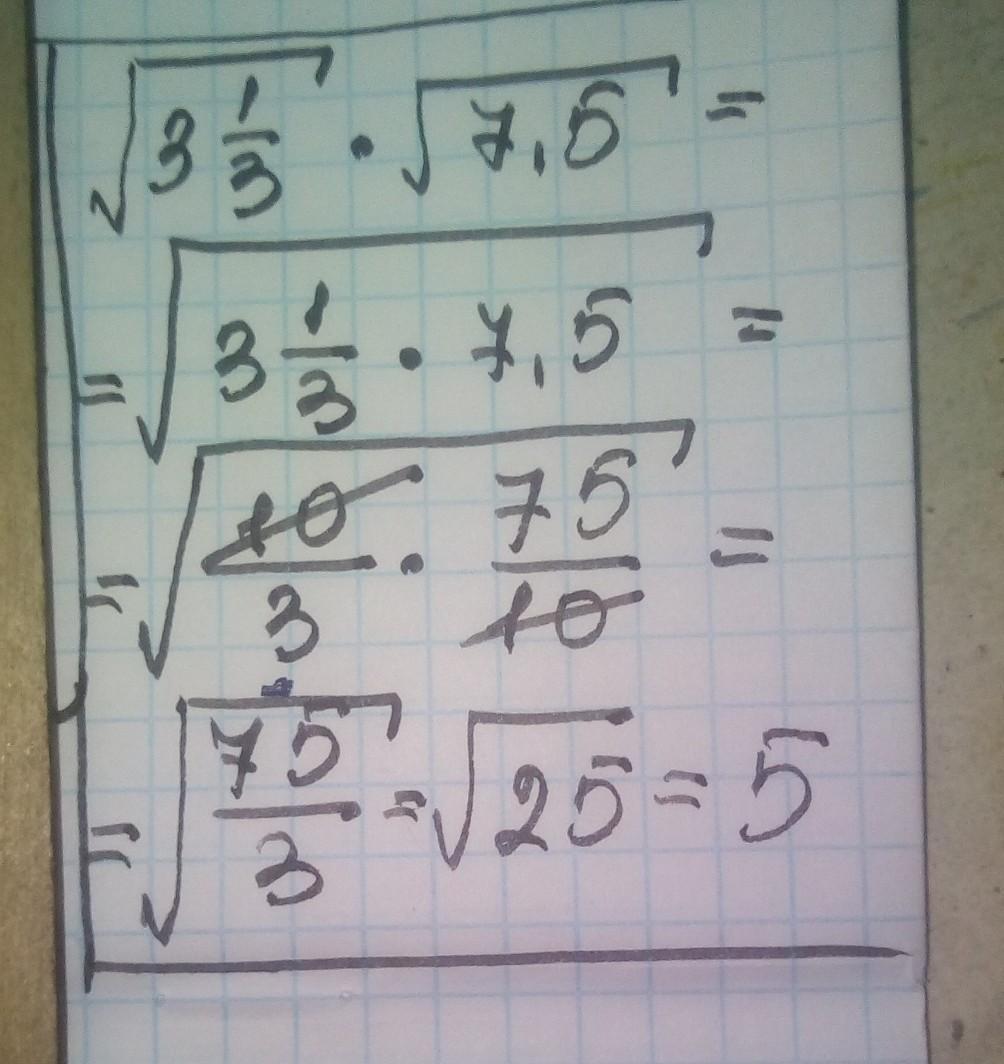 √3 1/3 · √7,5 =
= √3 1/3 · 7,5 =
= √10/3 · 75/10 =
= √75/3 = √25 = 5